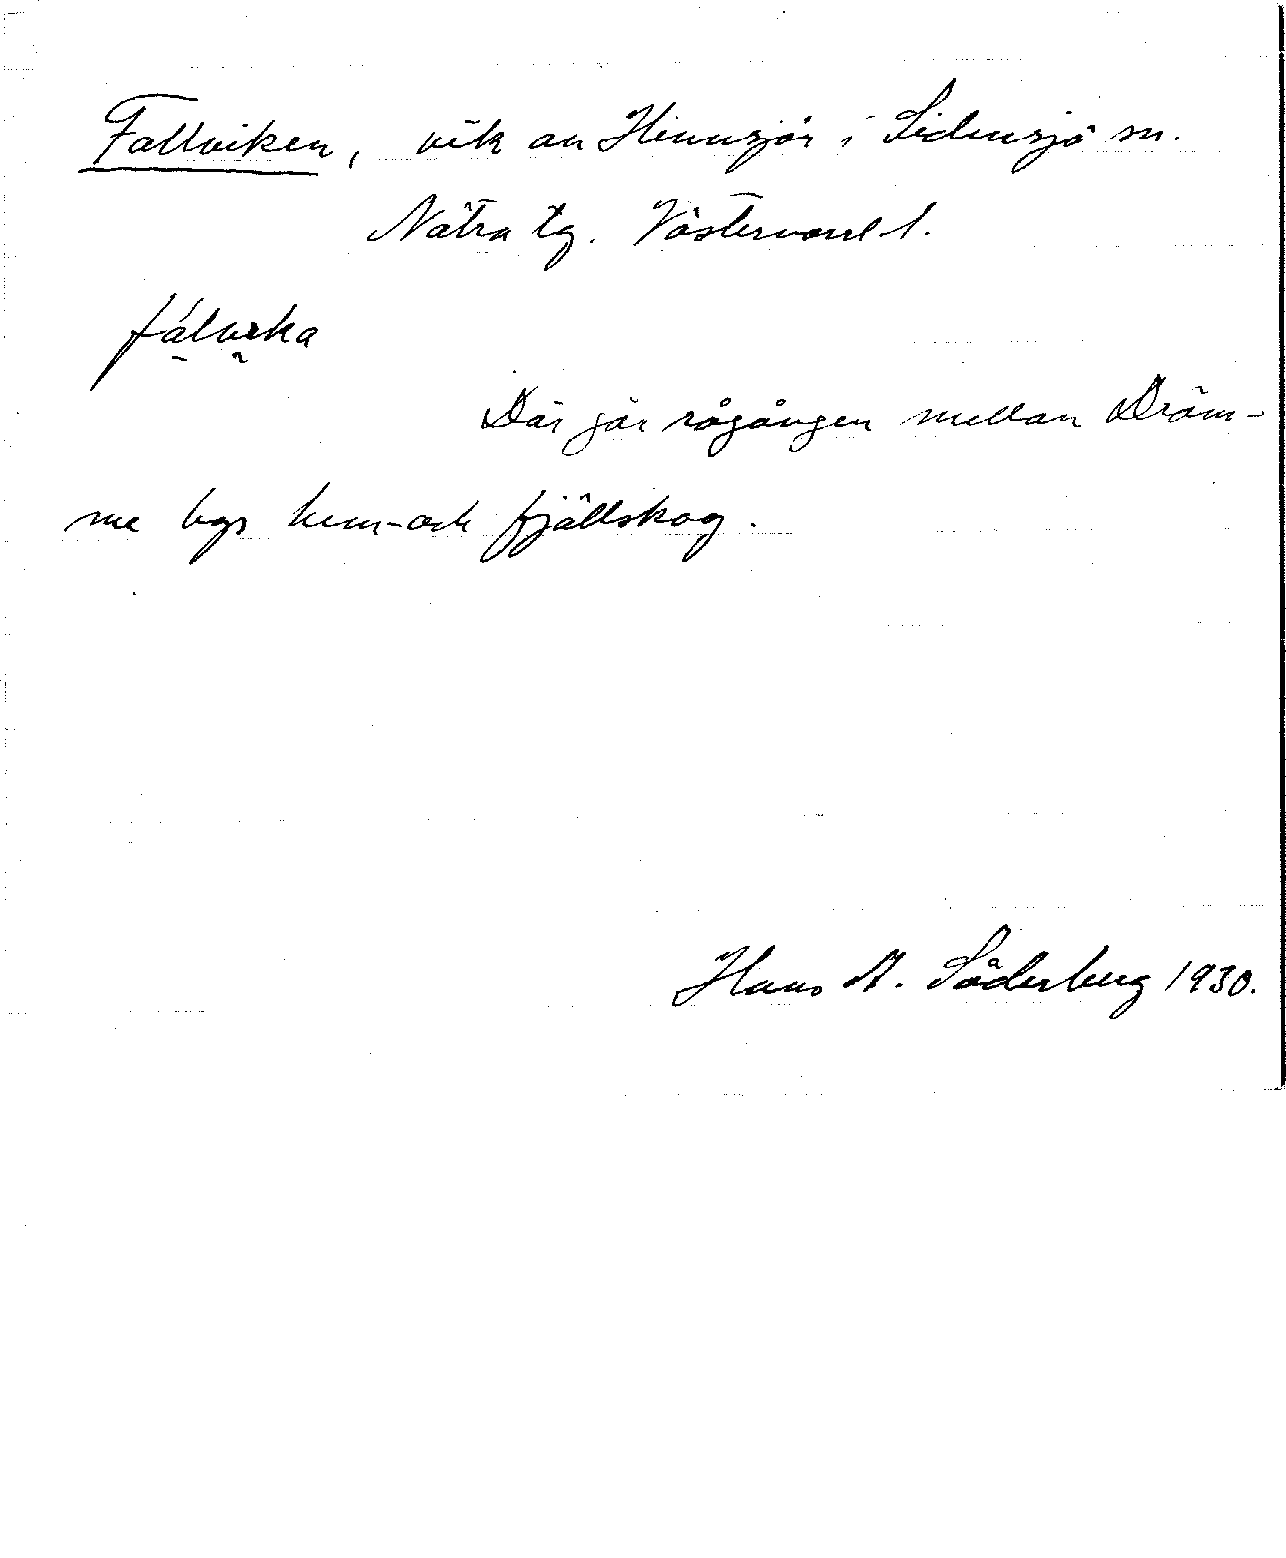 Fallviken, vik av Hinnsjön i Sidensjö sn.
Nätra tg. Västernorrl. l.
fálvıka
Där går rågången mellan Dröm-
me bys hem- och fjällskog.
Hans A. Söderberg 1930.